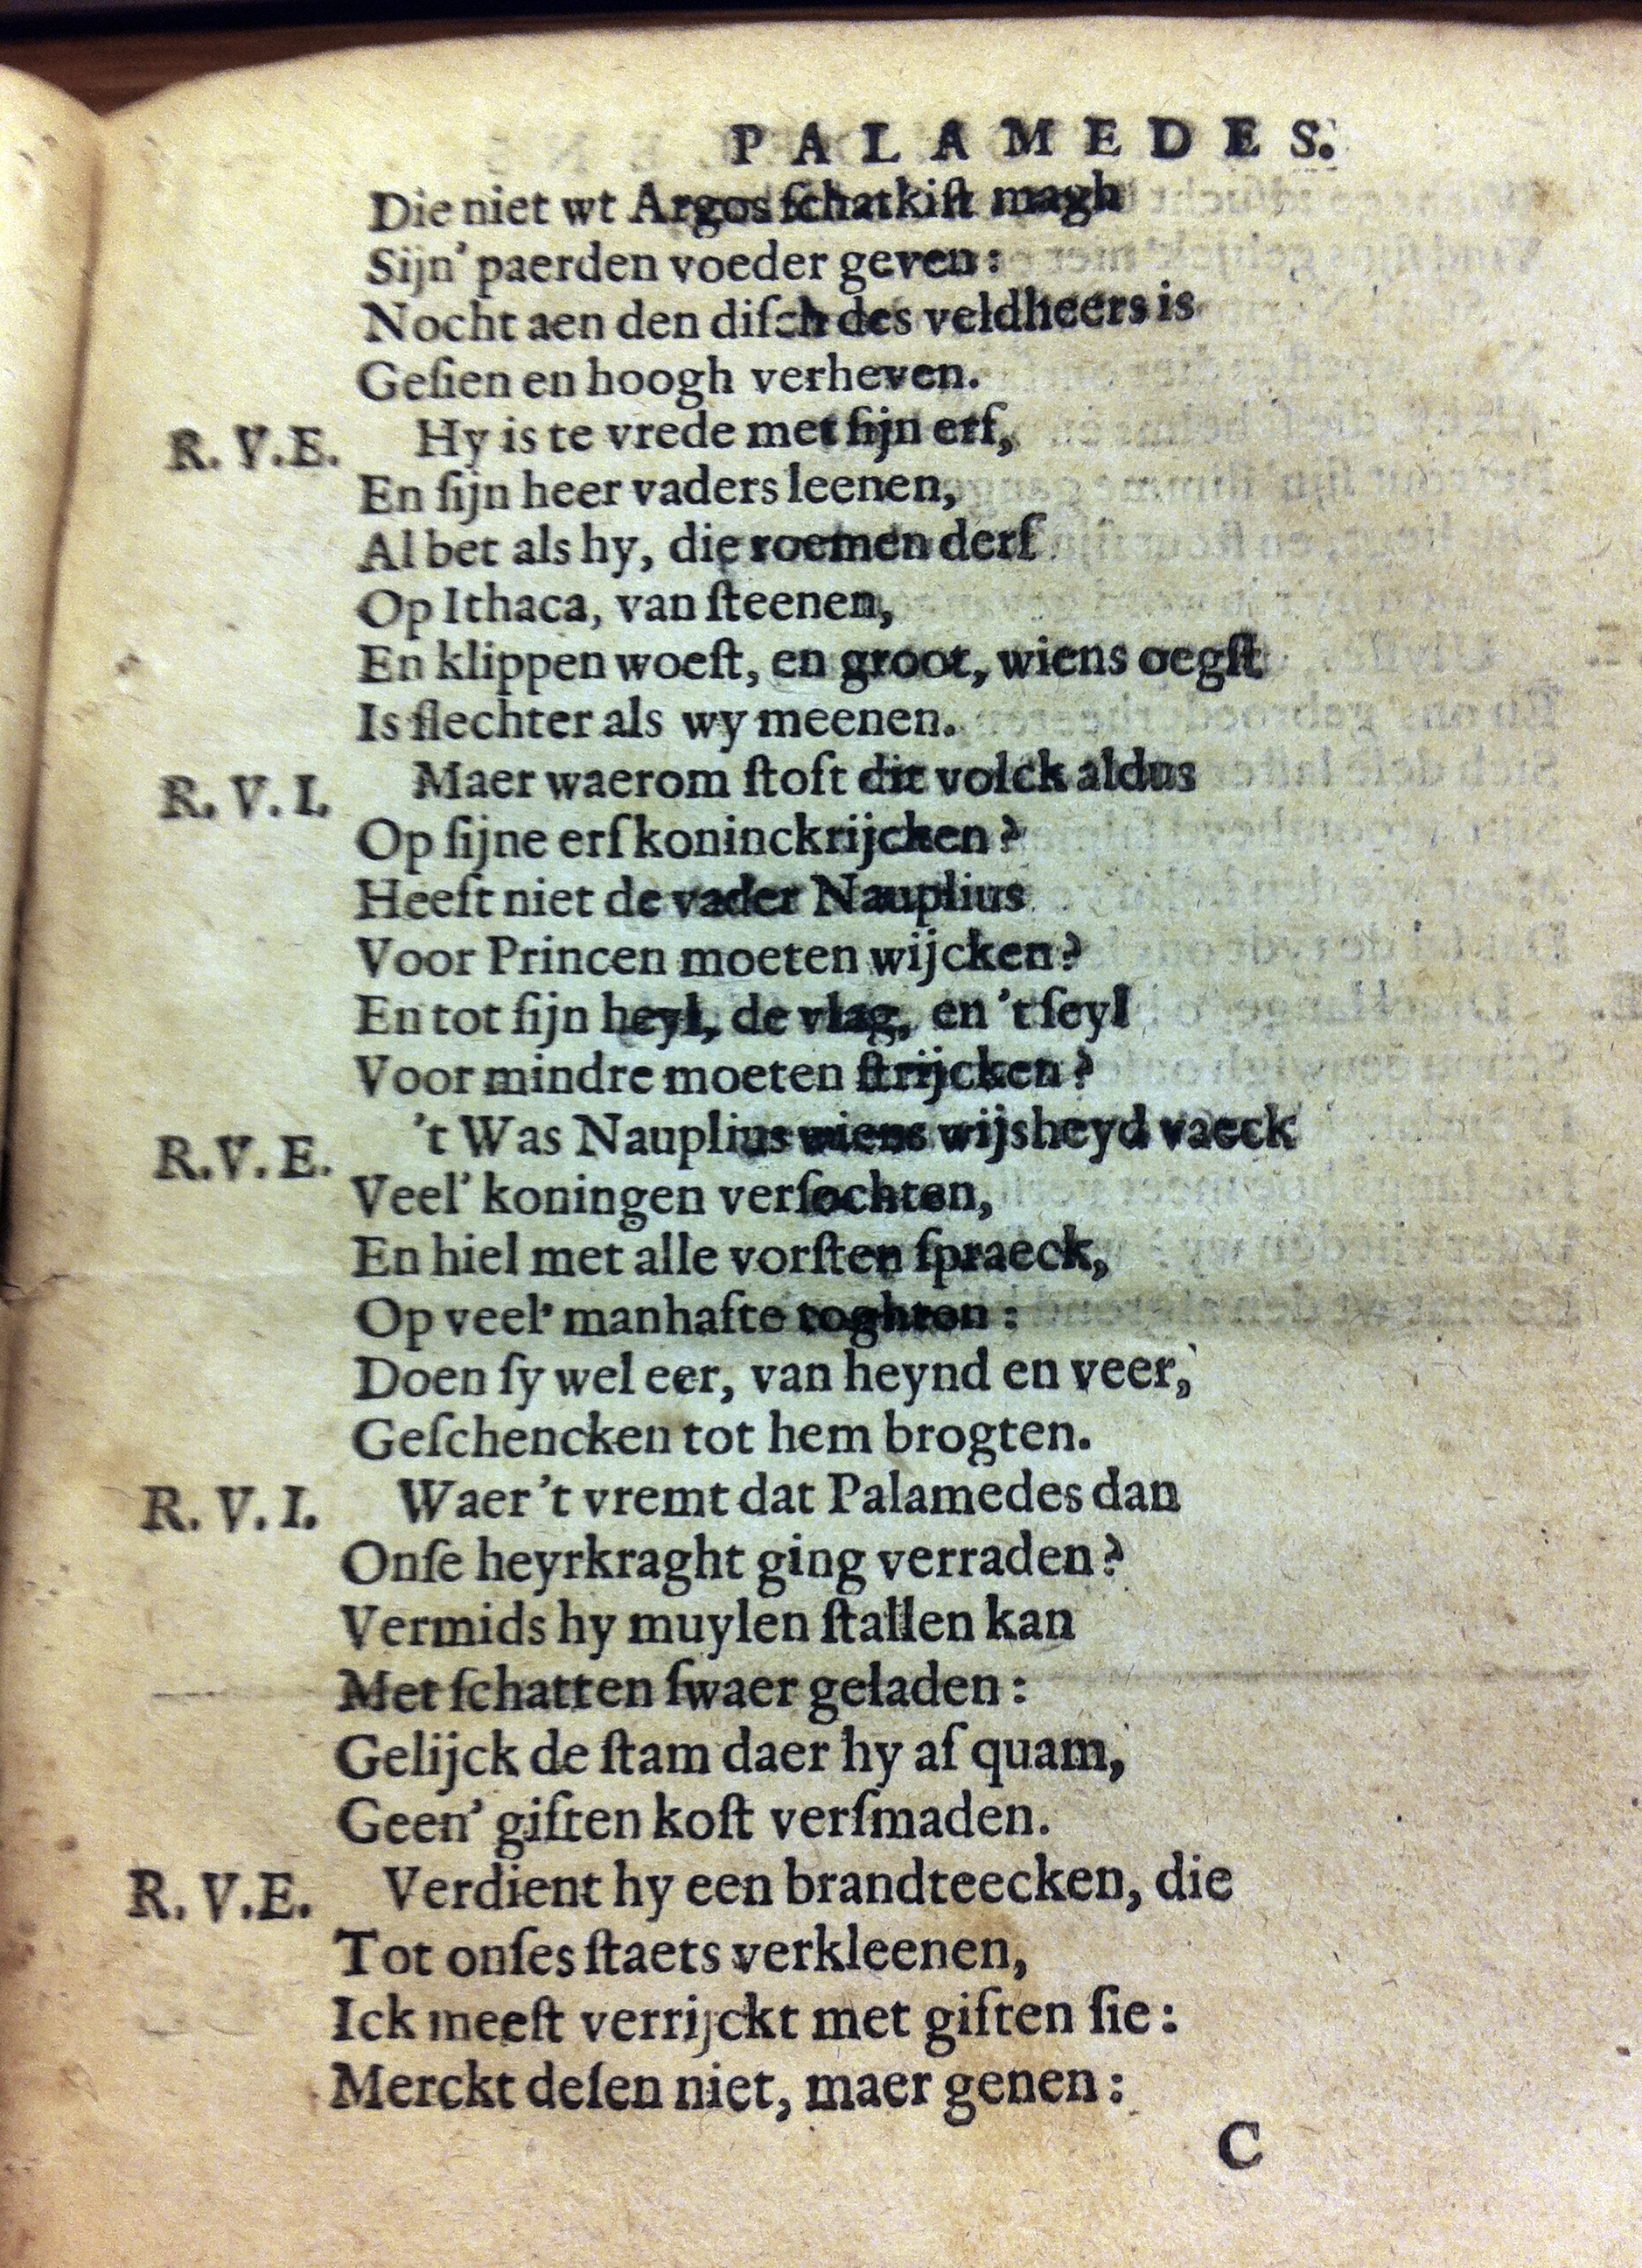 PALAMEDES.
Die niet wt Argos ſchatkiſt magh
Sijn' paerden voeder geven:
Nocht aen den diſch des veldheers is
Geſien en hoogh verheven.
R. V. E. Hy is te vrede met ſijn erf,
En ſijn heer vaders leenen,
Al bet als hy, die roemen derf
Op Ithaca, van ſteenen,
En klippen woeſt, en groot, wiens oegſt
Is ſlechter als wy meenen.
R. V. I. Maer waerom ſtoft dit volck aldus
Op ſijne erfkoninckrijcken?
Heeft niet de vader Nauplius
Voor Princen moeten wijcken?
En tot ſijn heyl, de vlag, en 't ſeyl
Voor mindre moeten ſtrijcken?
R. V. E. 't Was Nauplius wiens wijsheyd vaeck
Veel' koningen verſochten,
En hiel met alle vorſten ſpraeck,
Op veel' manhafte toghten:
Doen ſy wel eer, van heynd en veer,
Geſchencken tot hem brogten.
R. V. I. Waer 't vremt dat Palamedes dan
Onſe heyrkraght ging verraden?
Vermids hy muylen ſtallen kan
Met ſchatten ſwaer geladen:
Gelijck de ſtam daer hy af quam,
Geen' giften koſt verſmaden.
R. V. E. Verdient hy een brandteecken, die
Tot onſes ſtaets verkleenen,
Ick meeſt verrijckt met giften ſie:
Merckt deſen niet, maer genen:
C